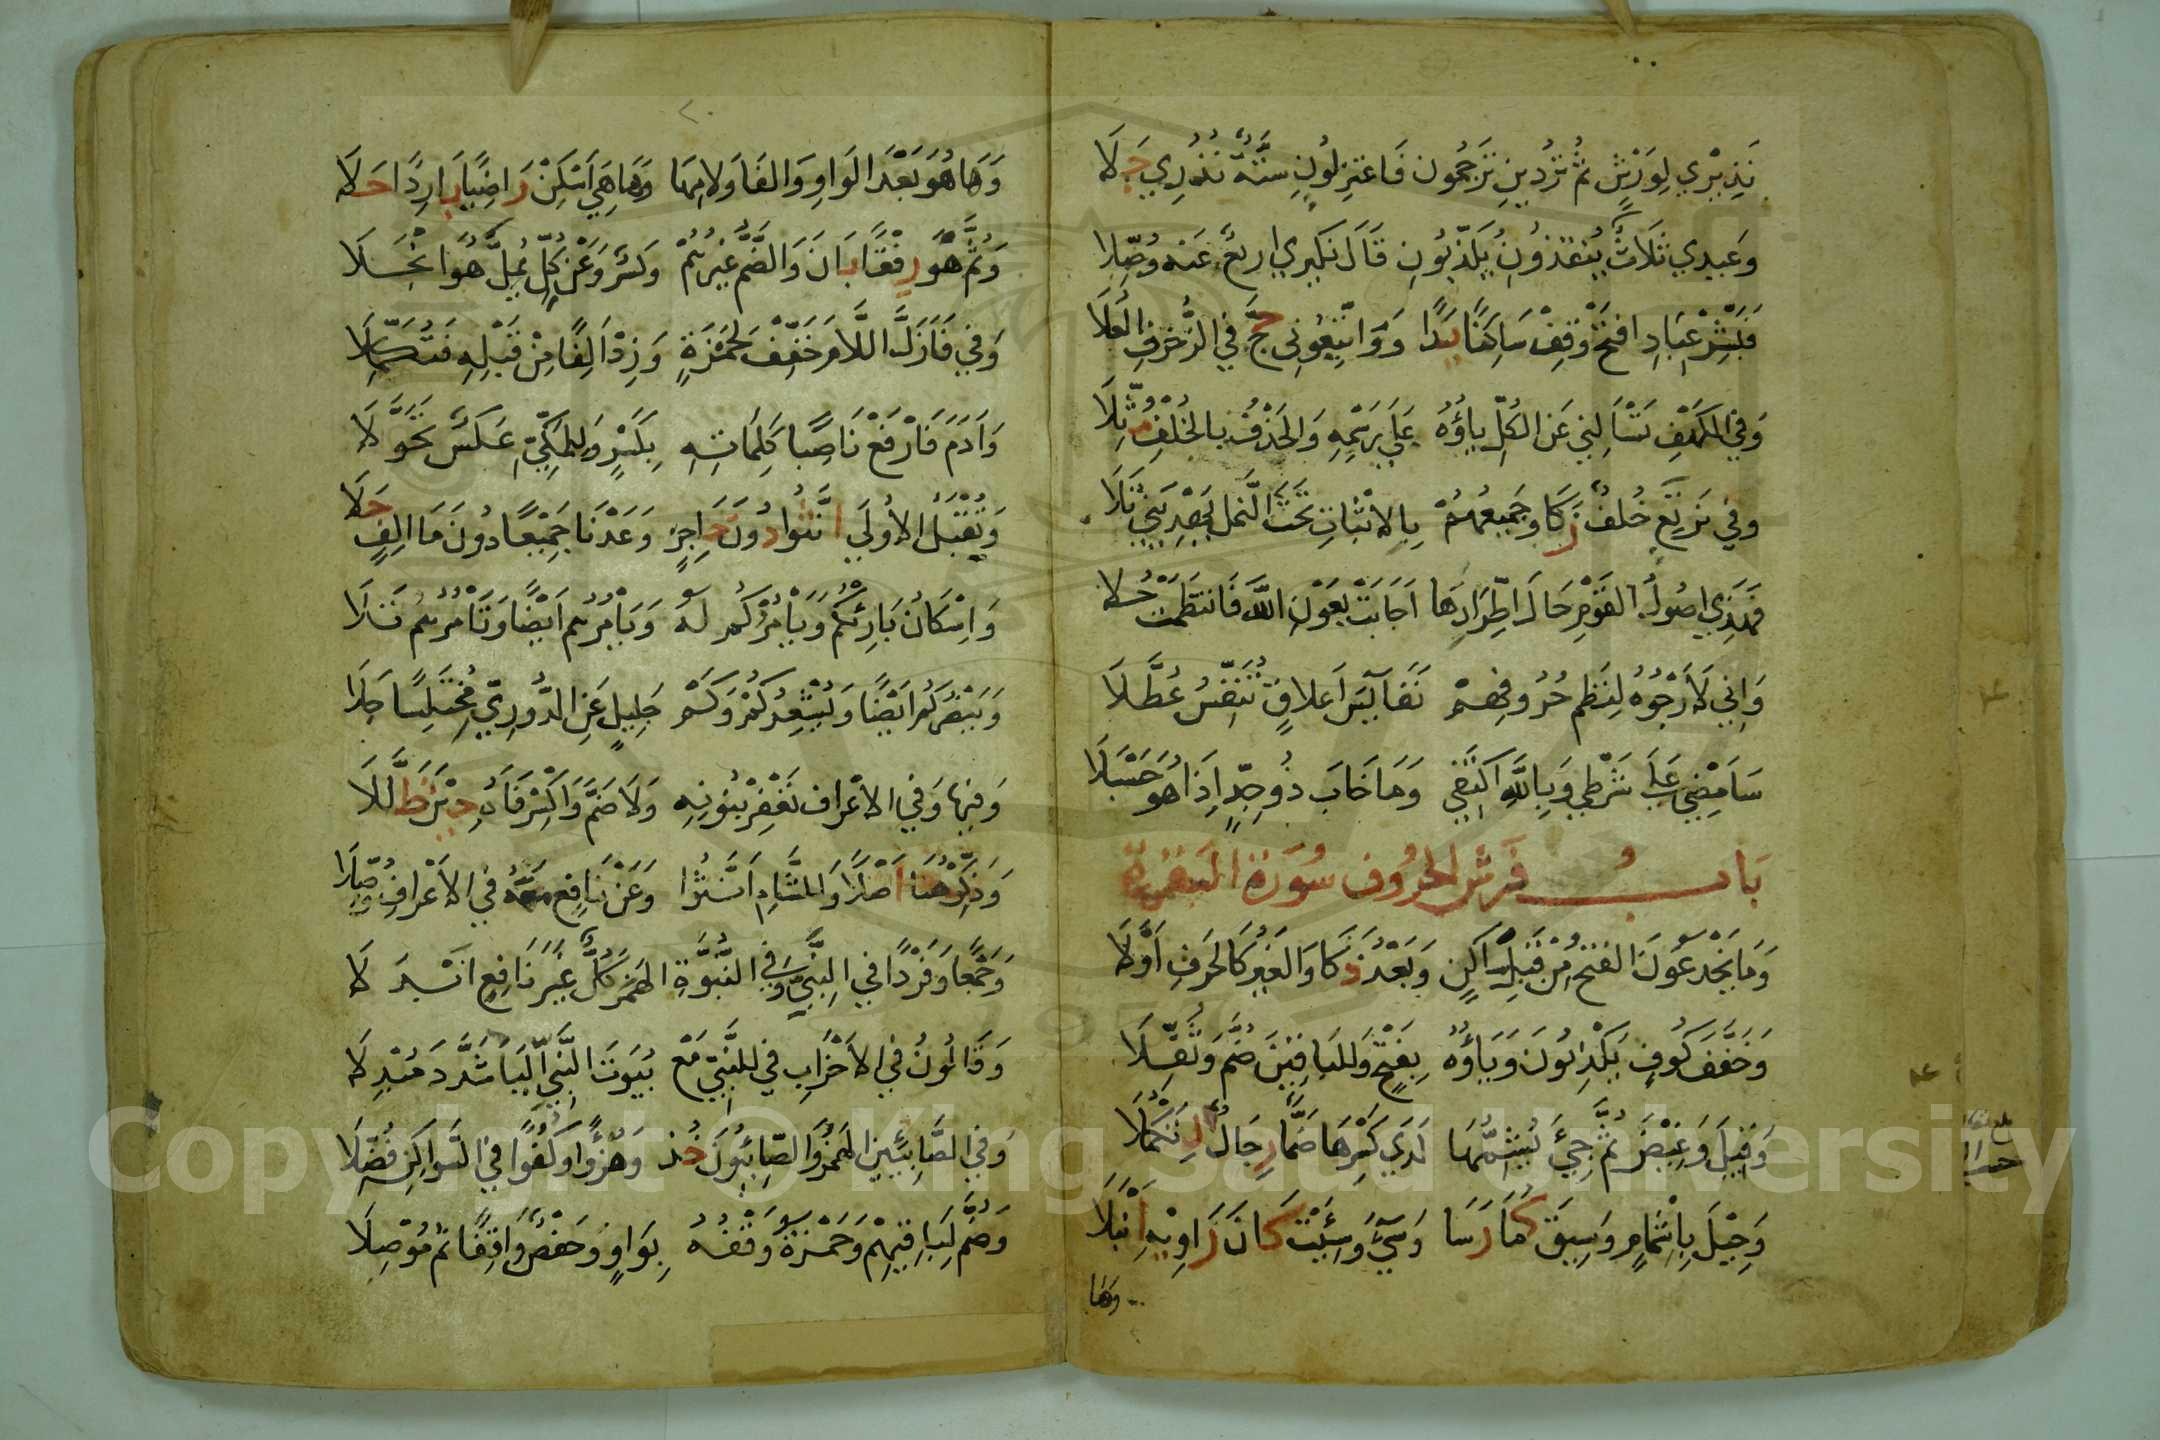 نَذِيرِي لِوَرْشٍ ثُمَّ تُرْدِينِ تَرْجُمُونِ فَاعْتَزِلُونِ سِتَّةٌ نُذُرِي جَلَا
وَعِيدِي ثَلَاثٌ يُنْقِذُونِ يُكَذِّبُونِ قَالَ نَكِيرِي اربعٌ عَنه وُصِّلا
فَبَشِّرْ عِبَادِ افتَحْ وَقِفْ سَاكِنًا يَدًا وَوَاتَّبِعُونِي حَجَّ فِي الزُّخرُفِ العُلَا
وَفِي الكَهْفِ تَسْأَلْنِي عَنِ الكُلِّ يَاؤُهُ عَلَي رَسْمِهِ وَالحَذْفُ بِالخُلْفِ مُثِّلَا
وفي نَرْتَعِ خُلفٌ زَكَا وَجَمِيعُهُمْ بِالاِثْبَاتِ تَحْتَ النَّمْلِ يَهْدِيَنِي تَلَا
فَهَذِي اصُولُ القَوْمِ حَالَ اطِّرَادِهَا اَجَابَتْ بِعَوْنِ اللَّهِ فَانتَظَمَتْ حُلا
وَاِنِي لَأَرْجُوهُ لِنَظْمِ حُرُوفِهِمْ نَفَايِسَ اَعلَاقٍ تُنَفِّسُ عُطَّلَا
سَاَمْضِي عَلَى شَرْطِي وَبِاللَّهِ اَكْتَفِي وَمَا خَابَ ذُو جِدٍّ اِذَا هُوَ حَسْبَلَا
بَابُ فَرْشِ الحُرُوفِ سُورَةُ البَقَرَةِ
وَمَا يَخْدَعُونَ الفتحُ مِنْ قَبْلِ سَاكِنٍ وَبَعْدُ ذَكَا وَالغَيْرُ كَالحَرفِ اَوَّلَا
وَخَفَّفَ كُوفٍ يَكْذِبُونَ وَيَاؤُهُ بِفَتْحٍ وَلِلبَاقِينَ ضُمَّ وَثُقِّلَا
وَقِيلَ وَغِيْضَ ثُمَّ جِيْءَ يُشِمُّهَا لَدَي كَسْرِهَا ضَمًّا رِجَالٌ لِتَكْمُلَا
وَحِيْلَ بِاِشْمَامٍ وَسِيقَ كَمَا رَسَا وَسِيءَ وَسِيئَتْ كَانَ رَاوِيهِ اَنْبَلَا
وها
وَهَا هُوَ بَعْدَ الوَاوِ وَالفَا وَلَامِهَا وَهَا هِيَ اَسْكِنْ رَاضِيًا بَارِدًا حَلَا
وَثُمَّ هُوَ رِفْقًا بَانَ وَالضَّمُّ غَيْرُهُمْ وَكَسْرٌ وَعَنْ كُلٍّ يُمِلَّ هُوَ انْجَلَا
وَفِي فَأَزَلَّ اللَّامَ خَفِّفْ لِحَمْزَةٍ وَزِدْ اَلِفًا مِنْ قَبْلِهِ فَتُكَمِّلَا
وَآدَمَ فَارْفَعْ نَاصِبًا كَلِمَاتِهِ بِكَسْرٍ وَلِلمَكِّيِّ عَكْسٌ تَحَوَّلَا
وَتُقْبَلُ الاُولَي اَنَّثُوا دُونَ حَاجِزٍ وَعَدْنَا جَمِيْعًا دُونَ مَا اَلِفٍ حَلَا
وَاِسْكَانُ بَارِئْكُمْ وَيَأْمُرْكُمْ لَهُ وَيَأْمُرُهُم اَيْضًا وَتَأْمُرُهُم تَلَا
وَيَنْصُرْكُمُ اَيْضًا وَيُشْعِرُكُمْ وَكَمْ جَلِيلٍ عَنِ الدُّورِيِّ مُخْتَلِسًا جَلَا
وَفِيهَا وَفِي الاعْرَافِ نَغْفِرْ بِنُونِهِ وَلَا ضَمَّ وَاكْسِرْ فَاءَهُ حِينَ ظَلَّلَا
وَذَكِّرْ هُنَا اَصْلًا وَالشَّامِ اَنَّثُوا وَعَنْ نَافِعٍ مَعْهُ فِي الاَعْرَافِ وُصِّلَا
وَجَمْعًا وَفَرْدًا فِي النَّبِيِّ وَفِي النُّبُوَّةِ الهَمْزَ كُلٌّ غَيْرَ نَافِعٍ ابْدَلَا
وَقَالُونُ فِي الاَحْزَابِ فِي لِلنَّبِيِّ مَعْ بُيُوتَ النَّبِيِّ اليَاءَ شَدَّدَ مُبْدِلَا
وَفِي الصَّابِئِينَ الهَمْزُ وَالصَّابِئُونَ خُذْ وَهُزْؤًا وَكُفْؤًا فِي السَّوَاكِنِ فُصِّلَا
وَضُمَّ لِبَاقِيهِمْ وَحَمْزَةُ وَقْفُهُ بِوَاوٍ وَحَفْصٌ وَاقِفًا ثُمَّ مُوْصِلَا
Copyright © King Saud University